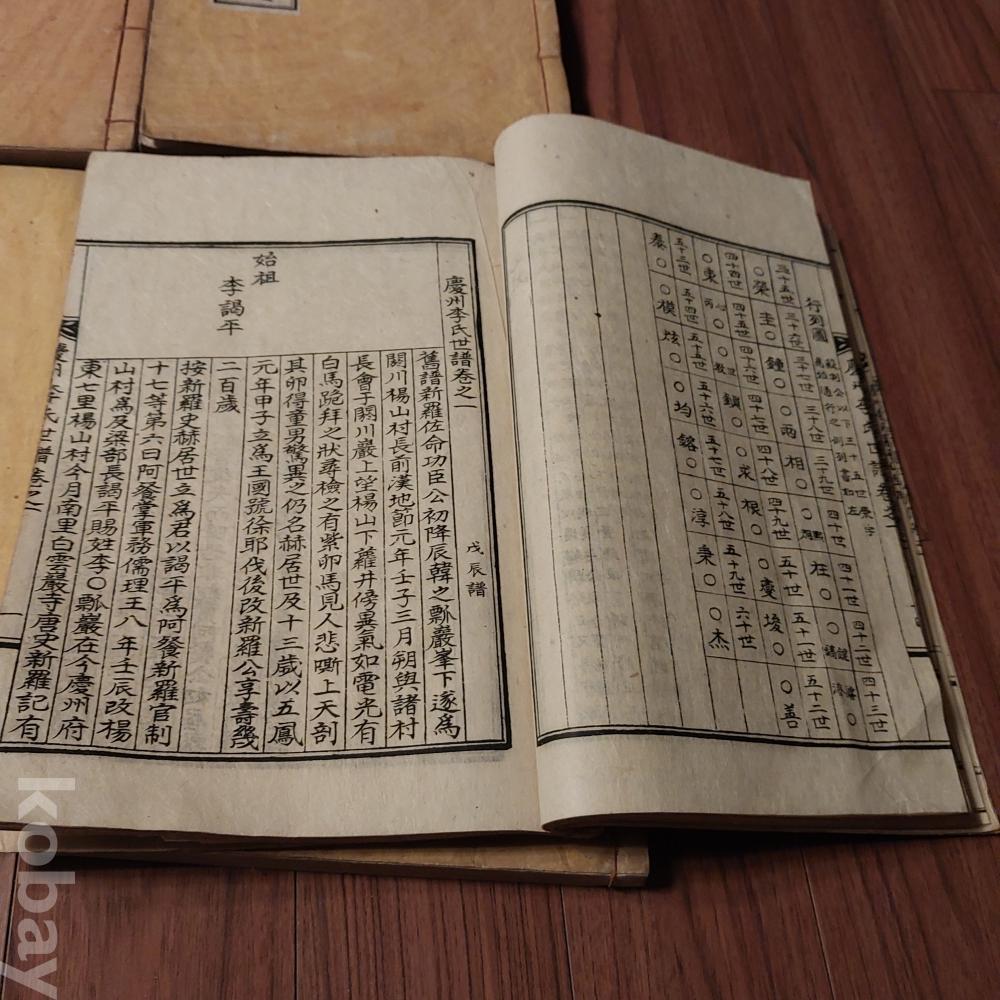 行列圖
三十五世 三十六世 三十七世 三十八世 三十九世 四十世 四十一世 四十二世 四十三世
○榮 圭○ 鍾○ ○雨 相○ ○熙 在○
四十四世 四十五世 四十六世 四十七世 四十八世 四十九世 五十世 五十一世 五十二世
○東 鎖○ ○求 根○ ○夔 埈○ ○善
五十三世 五十四世 五十五世 五十六世 五十七世 五十八世 五十九世 六十世
泰○ ○模 炫○ ○均 鎔○ ○淳 秉○ ○杰
慶州李氏世譜卷之一
戊辰譜
始祖
李謁平
舊譜新羅佐命功臣公初降辰韓之瓢巖峯下遂爲
閼川楊山村長前漢地節元年壬子三月朔與諸村
長會于閼川巖上望楊山下蘿井傍異氣如電光有
白馬跪拜之狀尋檢之有紫卵馬見人悲嘶上天剖
其卵得童男驚異之仍名赫居世及十三歲以五鳳
元年甲子立爲王國號徐耶伐後改新羅公享壽幾
二百歲
按新羅史赫居世立爲君以謁平爲阿餐新羅官制
十七等第六曰阿餐掌軍務儒理王八年壬辰改楊
山村爲及梁部長謁平賜姓李○瓢巖在今慶州府
東七里楊山村今月南里白雲巖寺唐史新羅記有
慶州李氏世譜卷之一
kobay